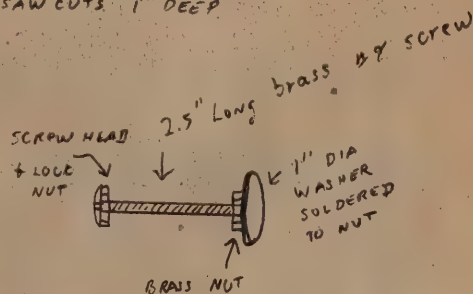 SAW CUTS 1" DEEP
2.5" LONG brass SCREW
SCREW HEAD
& LOCK
NUT
1" DIA
WASHER
SOLDERED
TO NUT
BRASS NUT